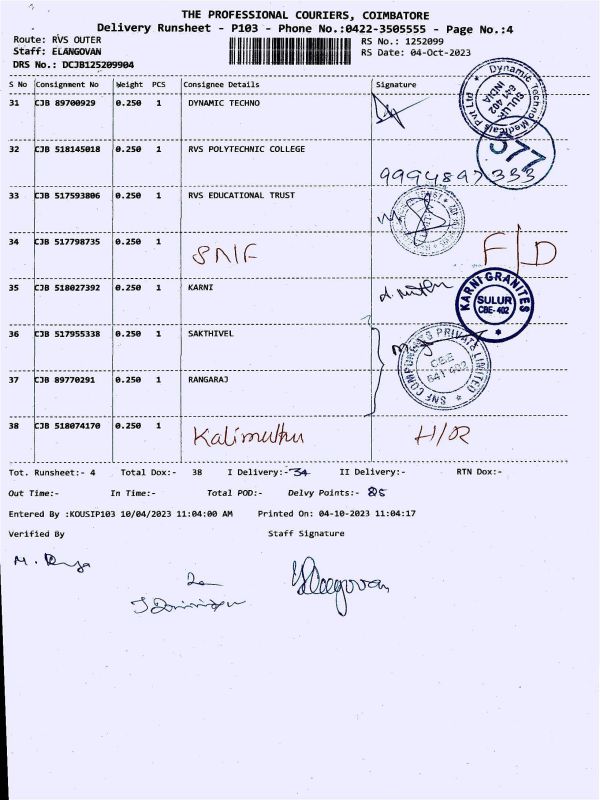 THE PROFESSIONAL COURIERS, COIMBATORE
Delivery Runsheet - P103 - Phone No.:0422-3505555 - Page No.:4
Route: RVS OUTER RS No.: 1252099
Staff: ELANGOVAN RS Date: 04-Oct-2023
DRS No.: DCJB125209904
S No Consignment No Weight PCS Consignee Details Signature
31 CJB 89700929 0.250 1 DYNAMIC TECHNO
Dynamic Techno Medicals Pvt Ltd
SULUR
641 402
INDIA
32 CJB 518145018 0.250 1 RVS POLYTECHNIC COLLEGE
577
9994897333
33 CJB 517593806 0.250 1 RVS EDUCATIONAL TRUST
34 CJB 517798735 0.250 1 SNIF F/D
35 CJB 518027392 0.250 1 KARNI
KARNI GRANITES
SULUR
CBE-402
36 CJB 517955338 0.250 1 SAKTHIVEL
SNF COMPONENTS PRIVATE LIMITED
CBE
641 402
37 CJB 89770291 0.250 1 RANGARAJ
38 CJB 518074170 0.250 1 Kalimuthu H/OR
Tot. Runsheet:- 4 Total Dox:- 38 I Delivery:- 34 II Delivery:- RTN Dox:-
Out Time:- In Time:- Total POD:- Delvy Points:- 25
Entered By :KOUSIP103 10/04/2023 11:04:00 AM Printed On: 04-10-2023 11:04:17
Verified By Staff Signature